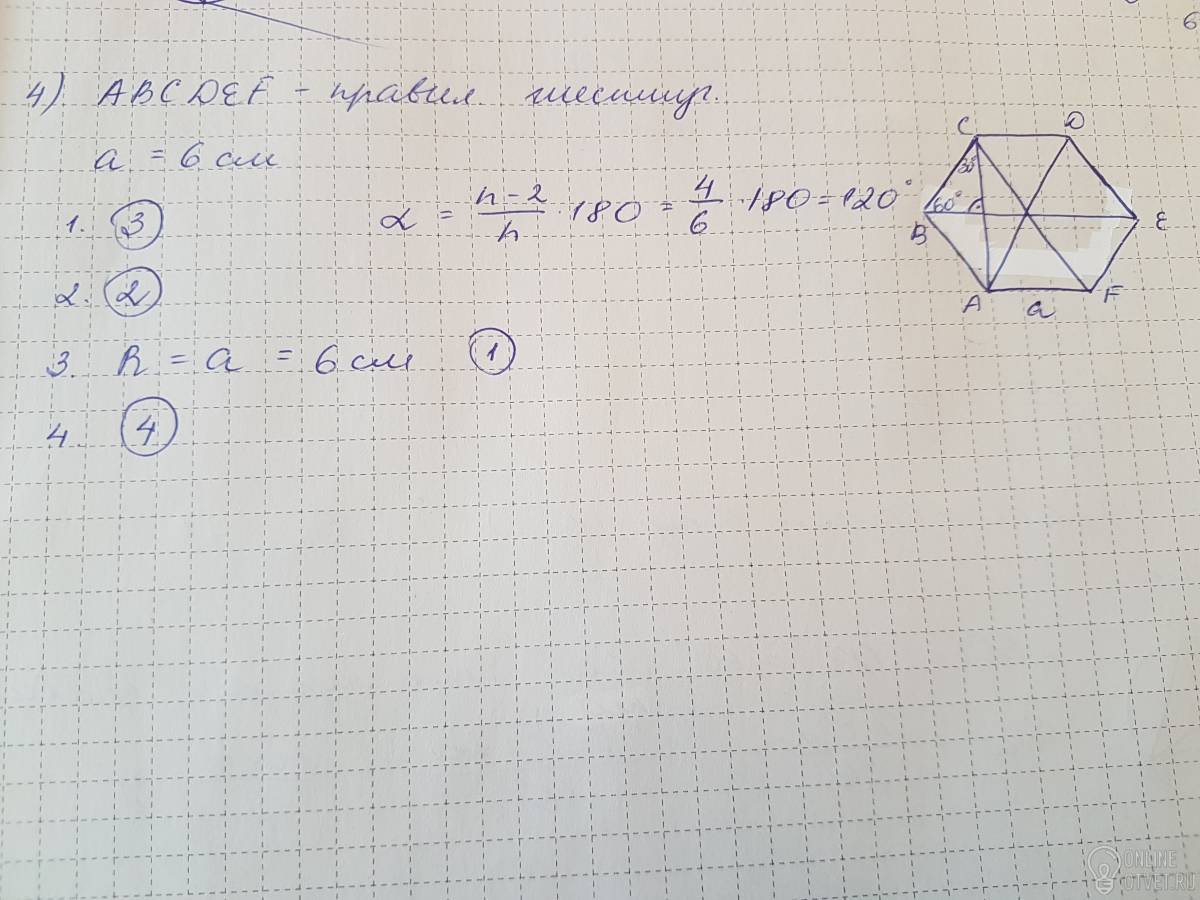 6
4) ABCDEF - правил. шестиуг.
a = 6 см
1. 3
α = n-2/n · 180 = 4/6 · 180 = 120°
2. 2
3. R = a = 6 см 1
4. 4
C D
30°
60°
B E
A a F
ONLINE
OTVET.RU